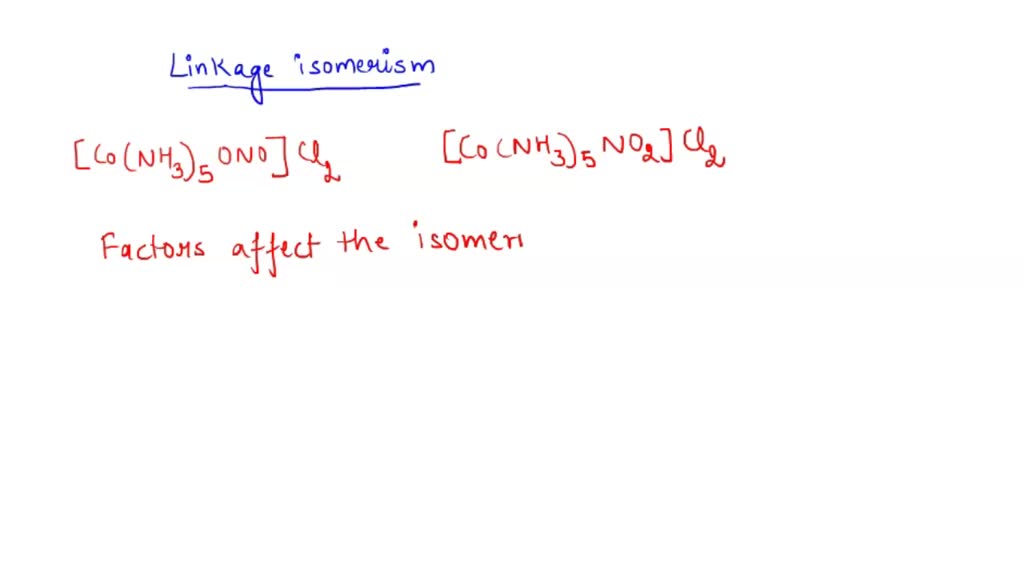 Linkage isomerism
[Co(NH₃)₅ONO]Cl₂ [Co(NH₃)₅NO₂]Cl₂
Factors affect the isomeri